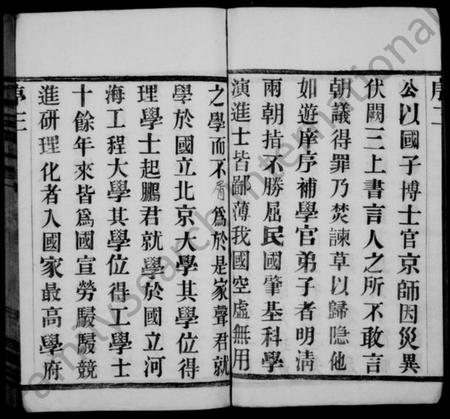 序二
公以國子博士官京師因災異
伏闕三上書言人之所不敢言
朝議得罪乃焚諫草以歸隐他
如遊庠序補學官弟子者明清
兩朝指不勝屈民國肇基科學
演進士皆鄙薄我國空虛無用
之學而不屑為於是家聲君就
學於國立北京大學其學位得
理學士起鵬君就學於國立河
海工程大學其學位得工學士
十餘年來皆爲國宣勞駸駸競
進研理化者入國家最高學府
序三
familysearch international